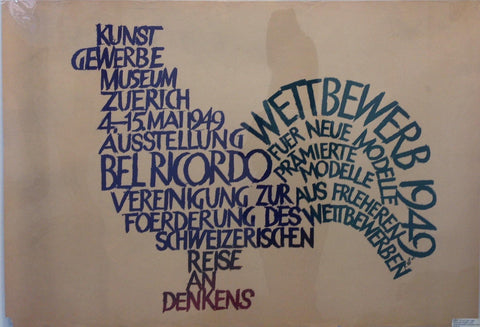 KUNST
GEWERBE
MUSEUM
ZUERICH
4.–15. MAI 1949
AUSSTELLUNG
BEL RICORDO
VEREINIGUNG ZUR
FOERDERUNG DES
SCHWEIZERISCHEN
REISE
AN
DENKENS
WETTBEWERB 1949
FUER NEUE MODELLE
PRÄMIERTE
MODELLE
AUS FRUEHEREN
WETTBEWERBEN